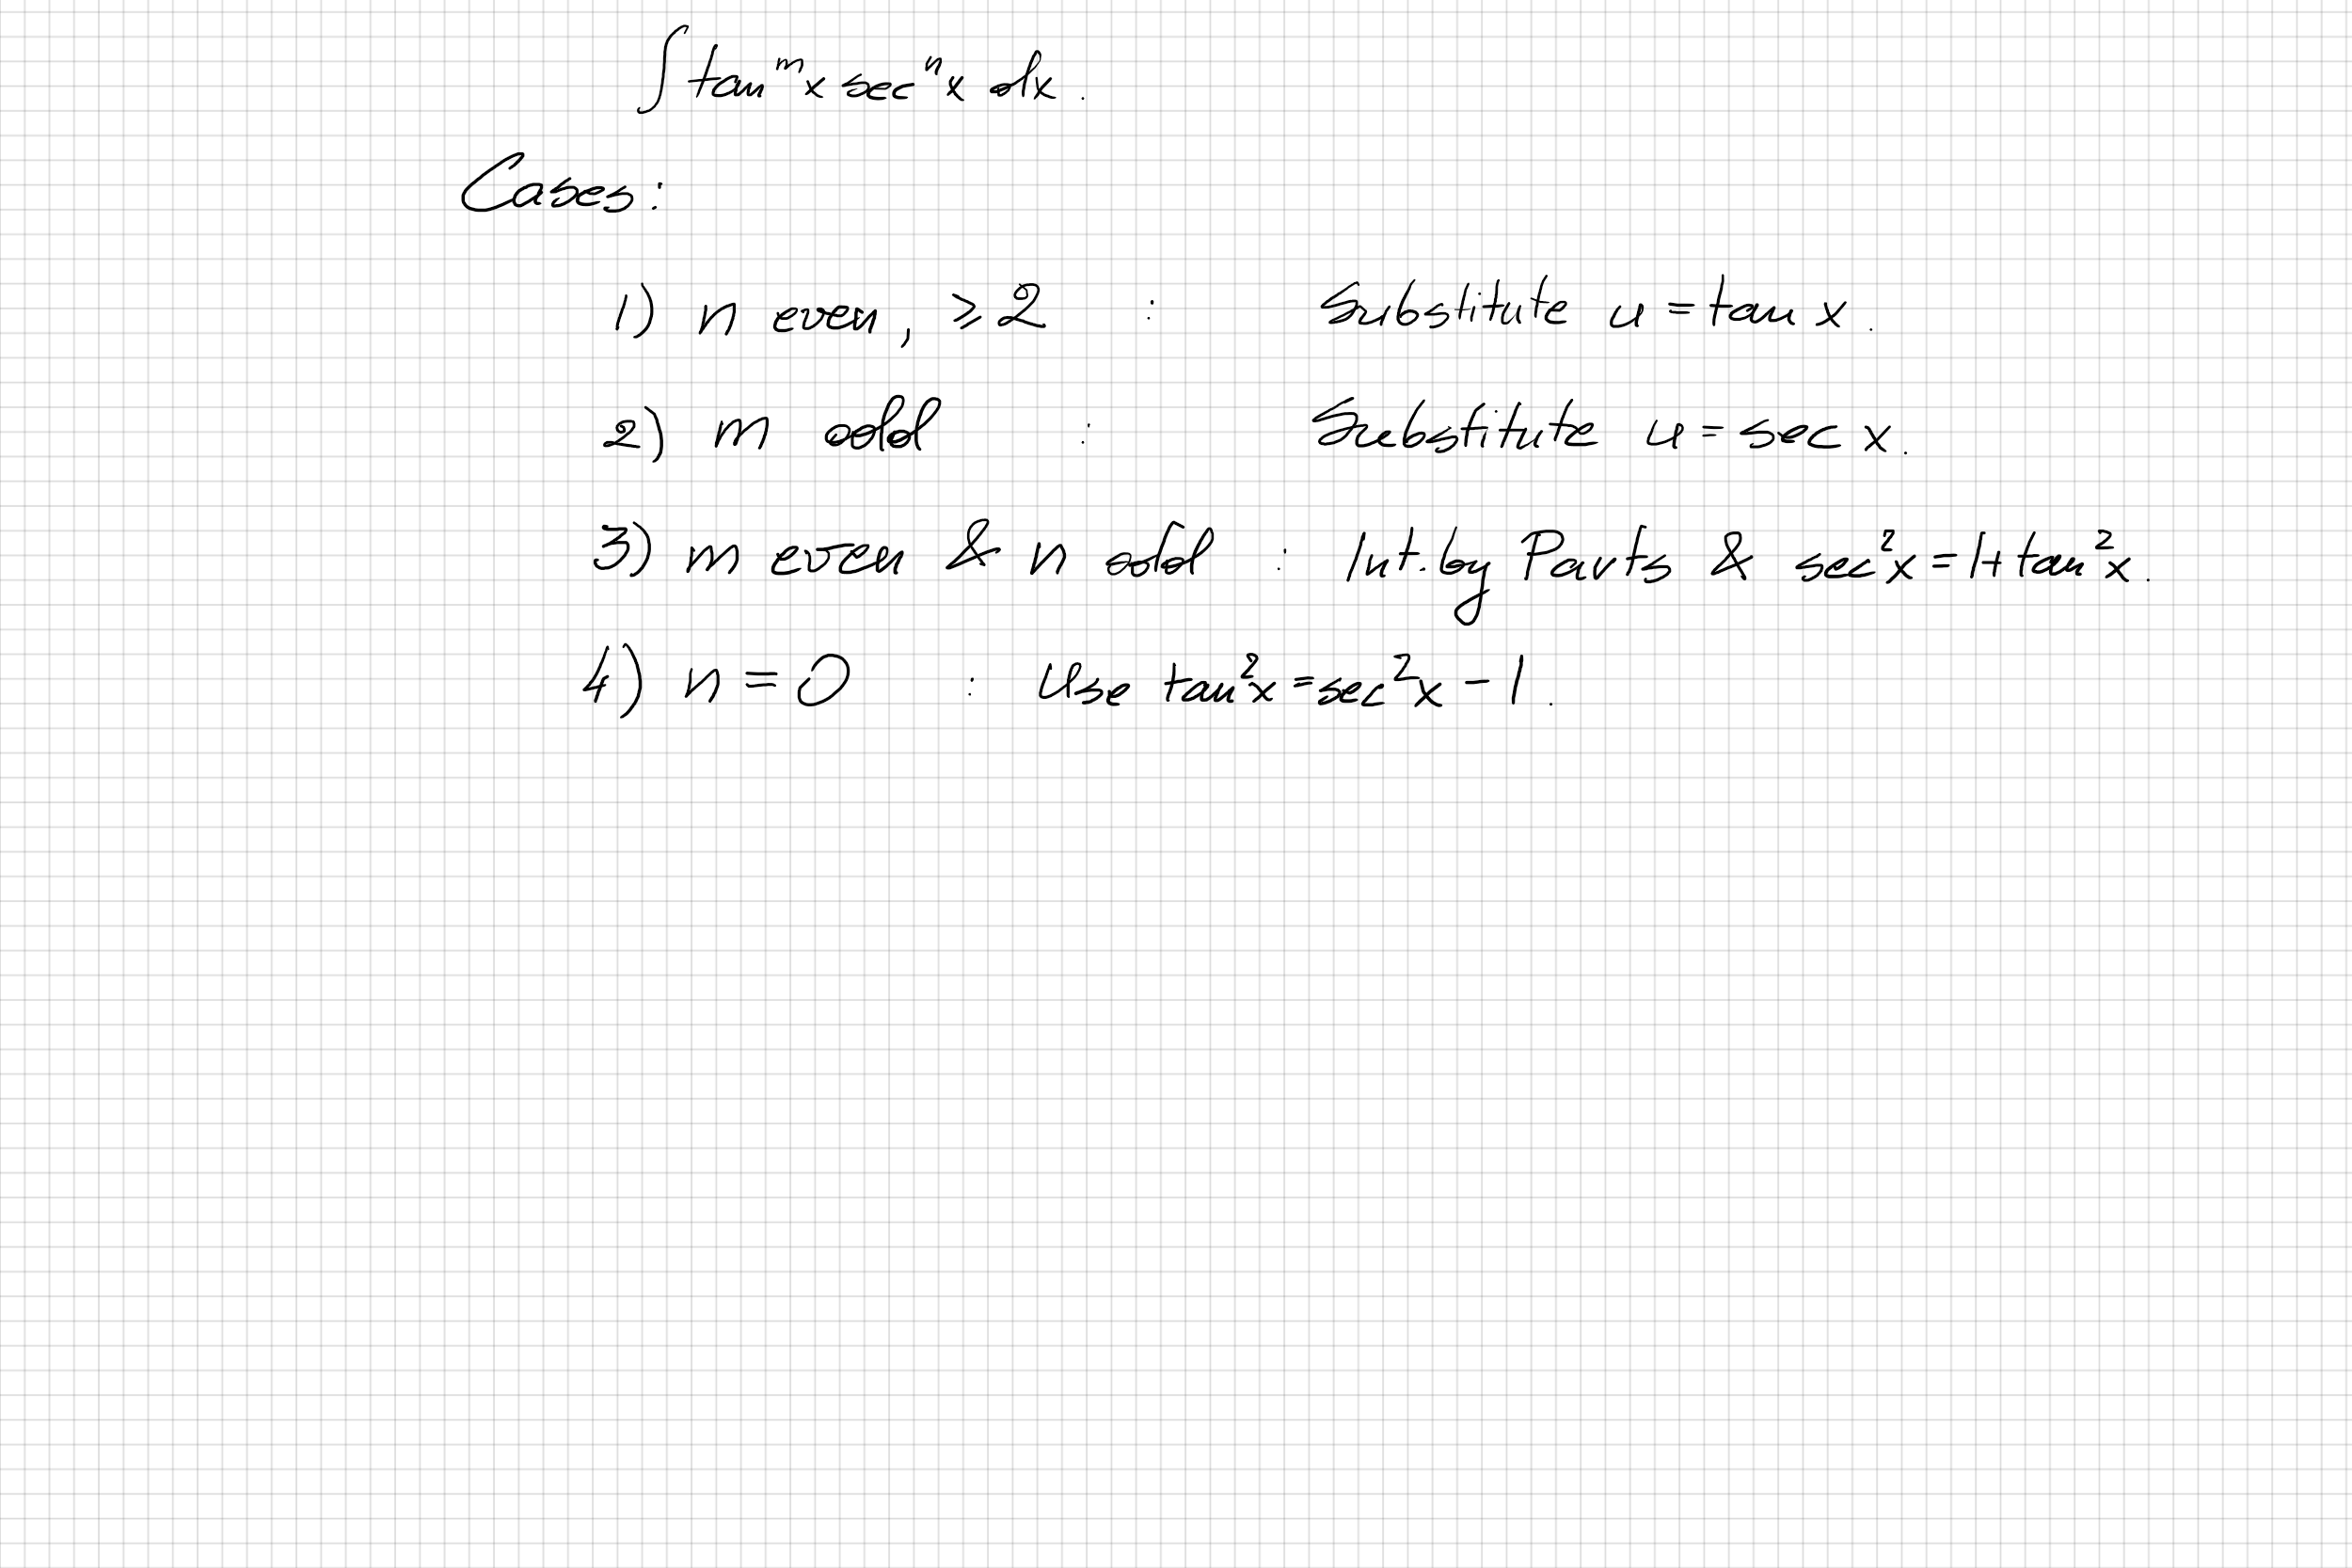 ∫ tan^m x sec^n x dx.
Cases:
1) n even, ⩾ 2 : Substitute u = tan x.
2) m odd : Substitute u = sec x.
3) m even & n odd : Int. by Parts & sec²x = 1 + tan²x.
4) n = 0 : Use tan²x = sec²x − 1.